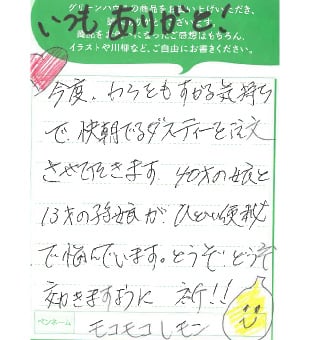 いつもありがと!
グリーンハウスの商品をお買い上げいただき、
商品をお使いになったご感想はもちろん、
イラストや川柳など、ご自由にお書きください。
今度、わらともすがる気持ち
で、快朝でるダスティーを注文
させて頂きます。40才の娘と
13才の孫娘が、ひどい便秘
で悩んでいます。どうぞ、どうぞ
効きますように 祈!!
ペンネーム
モコモコレモン